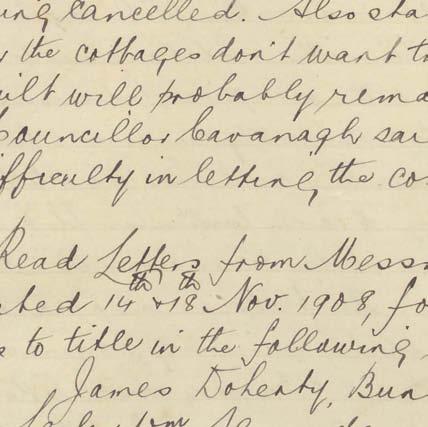 ing cancelled. Also sta
the cottages don't want t
uilt will probably rema
Councillor Cavanagh sai
fficulty in letting the co
Read Letters from Messr
ated 14th & 18th Nov. 1908, fo
to title in the following
James Doherty, Bun